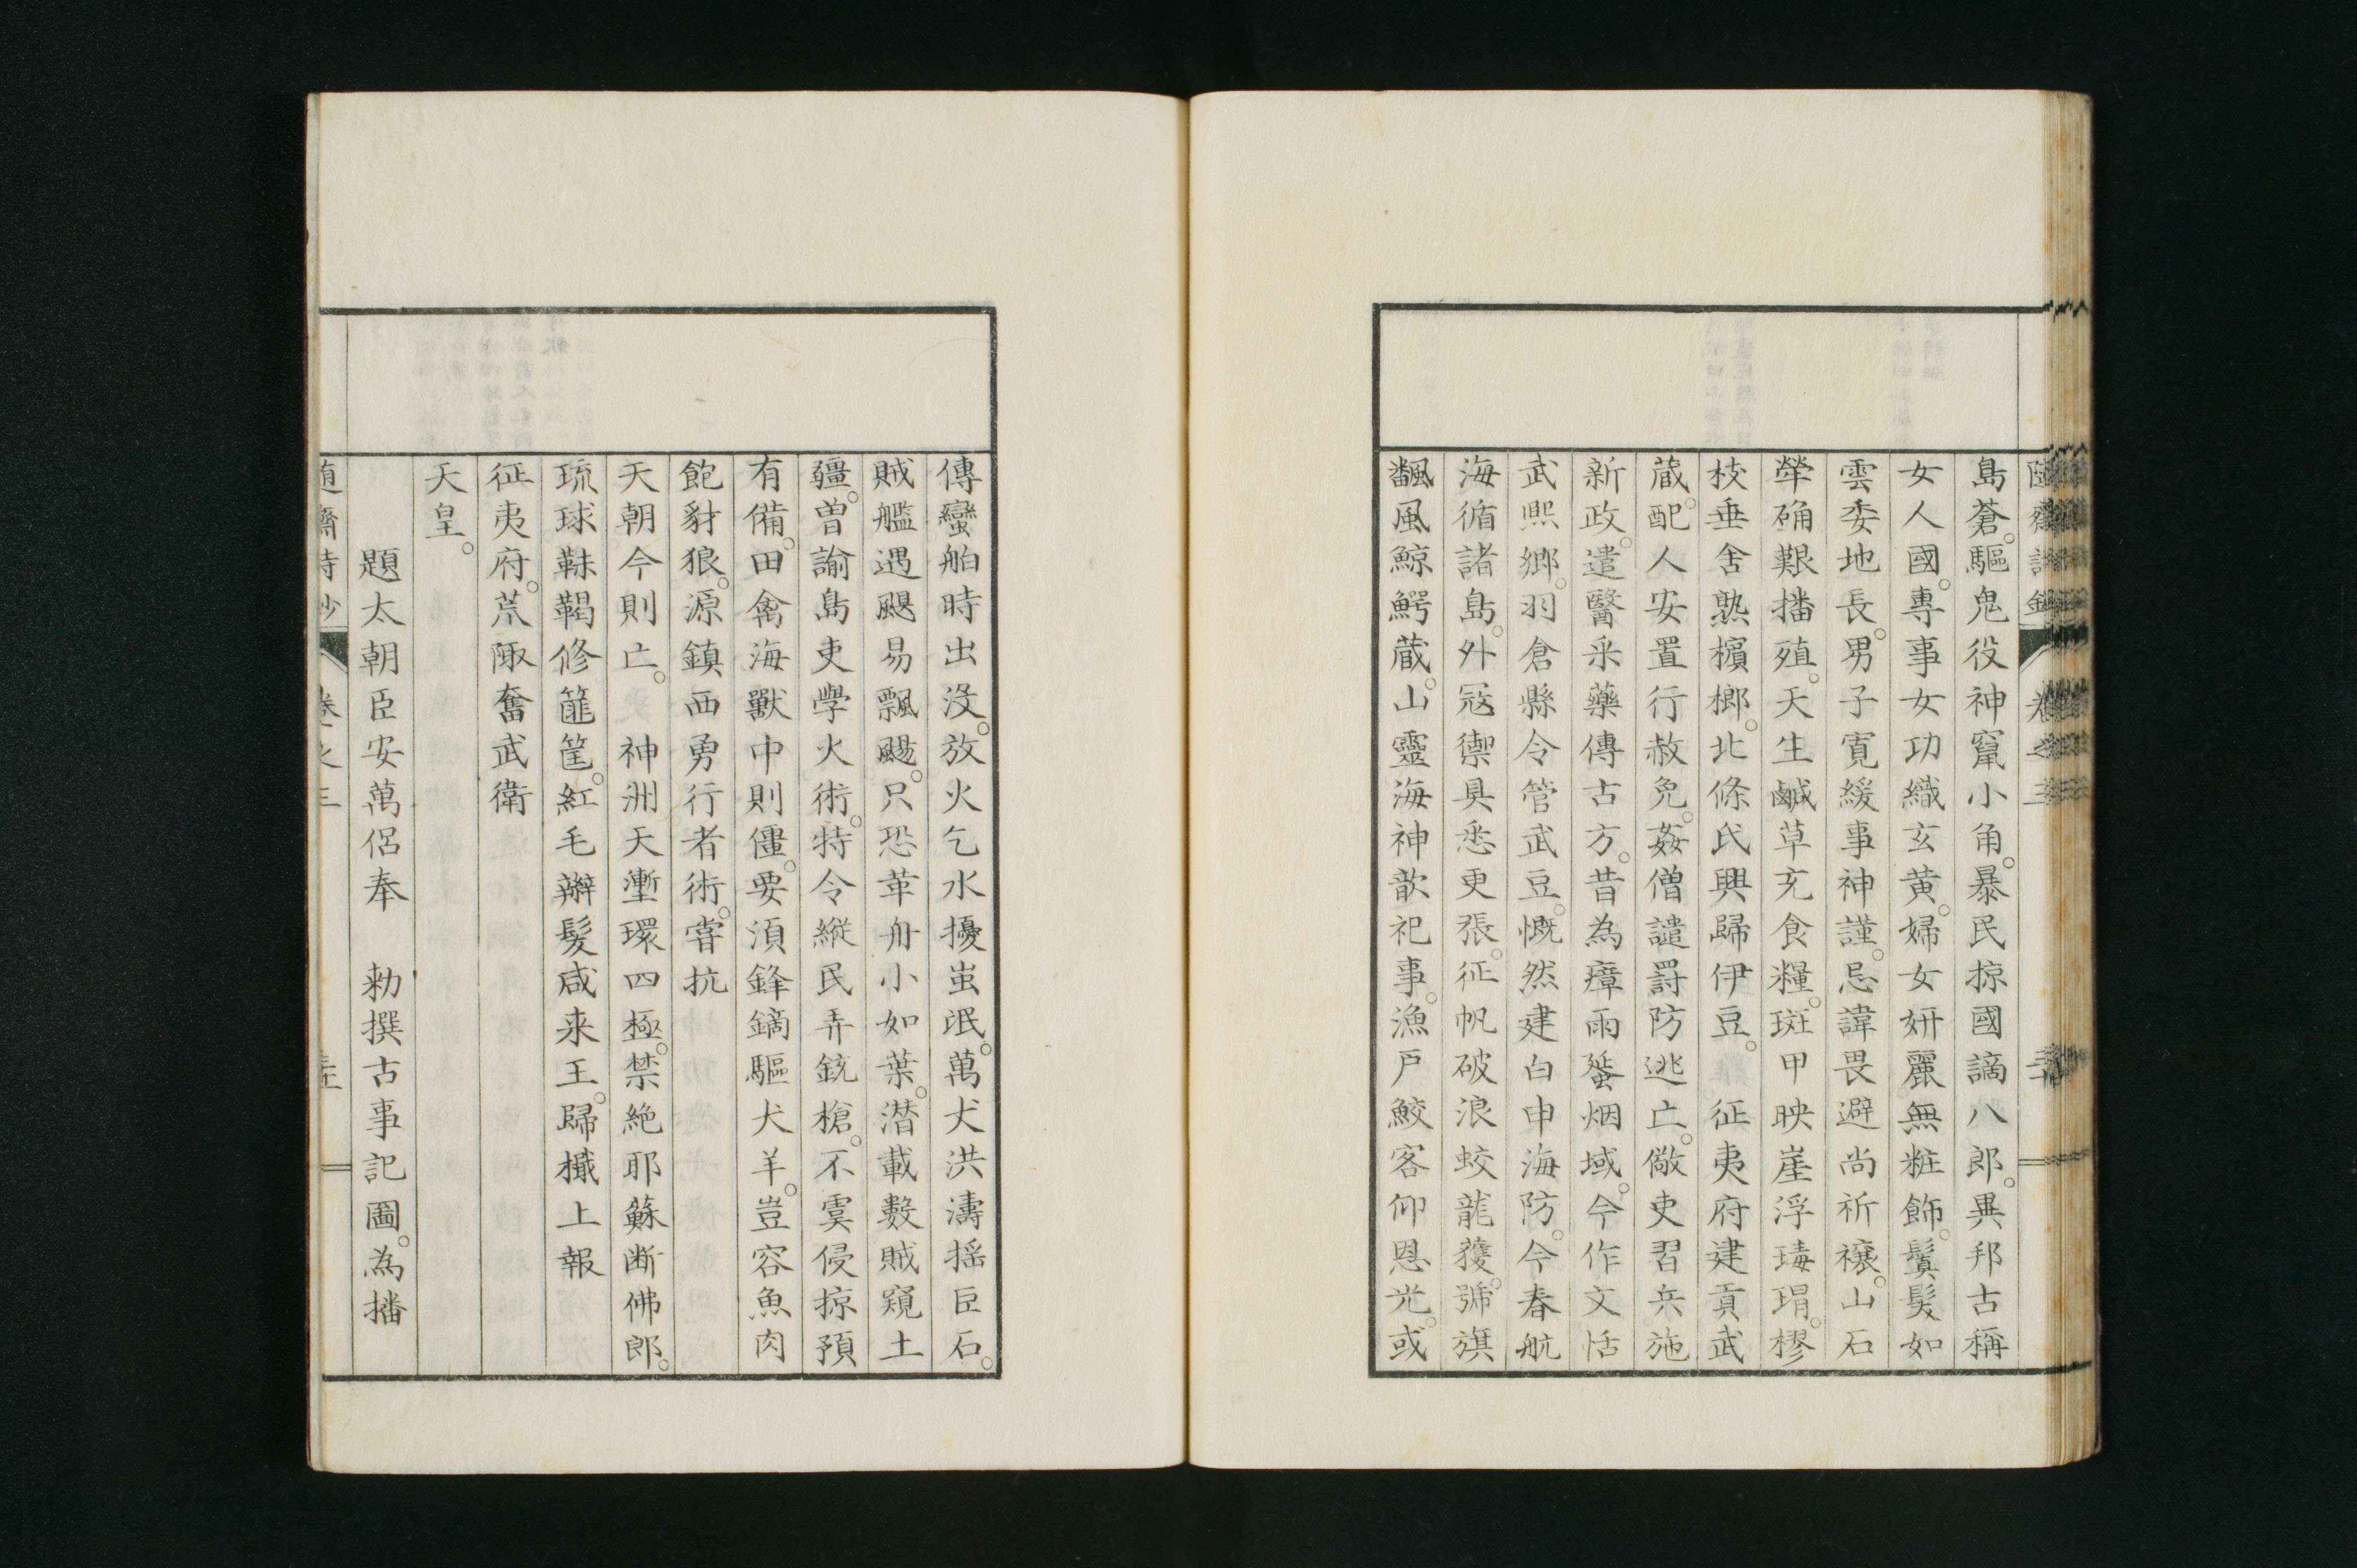 島蒼。驅鬼役神竄小角。暴民掠國謫八郎。異邦古稱
女人國。專事女功織玄黃。婦女妍麗無粧飾。鬒髮如
雲委地長。男子寬緩事神謹。忌諱畏避尚祈禳。山石
犖确艱播殖。天生鹹草充食糧。斑甲映崖浮瑇瑁。樛
枝垂舍熟檳榔。北條氏興歸伊豆。征夷府建貢武
蔵。配人安置行赦免。姦僧譴罸防逃亡。儆吏習兵施
新政。遣醫采藥傳古方。昔為瘴雨蜑烟域。今作文恬
武熈鄉。羽倉縣令管武豆。慨然建白申海防。今春航
海循諸島。外冦禦具悉更張。征帆破浪蛟龍獲。號旗
飜風鯨鰐蔵。山靈海神歆祀事。漁戶鮫客仰恩光。或
傳蠻舶時出沒。放火乞水擾蚩氓。萬犬洪濤揺臣石。
賊艦遇颶易飄颺。只恐革舟小如葉。潜載數賊窺土
疆。曽諭島吏學火術。特令縦民弄銃槍。不虞侵掠預
有備。田禽海獸中則僵。要湏鋒鏑驅犬羊。豈容魚肉
飽豺狼。源鎮西勇行者術。嘗抗
天朝今則亡。神洲天塹環四極。禁絶耶蘇断佛郎。
琉球靺鞨修篚筐。紅毛辮髮咸来王。歸檝上報
征夷府。荒陬奮武衛
天皇。
題太朝臣安萬侶奉 勅撰古事記圖。為播